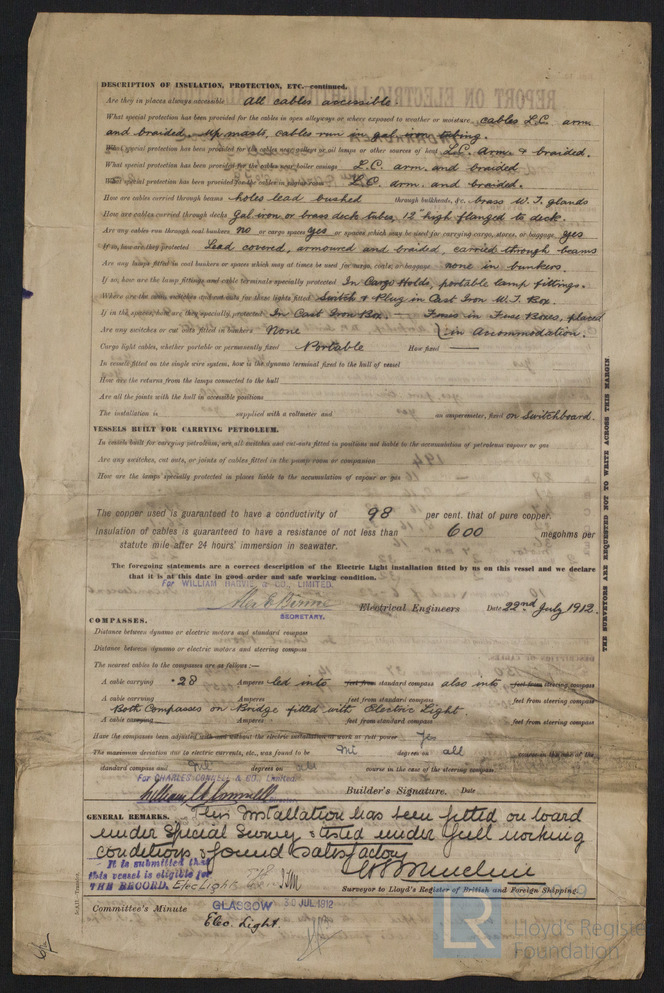 DESCRIPTION OF INSULATION, PROTECTION, ETC. continued.
Are they in places always accessible All cables accessible.
What special protection has been provided for the cables in open alleyways or where exposed to weather or moisture cables L.C. arm
and braided. Up masts, cables run in gal iron tubing.
What special protection has been provided for the cables near galleys or oil lamps or other sources of heat L.C. Arm. & braided.
What special protection has been provided for the cables near boiler casings L.C. arm. and braided
What special protection has been provided for the cables in engine room L.C. arm. and braided.
How are cables carried through beams holes lead bushed through bulkheads, &c. brass W.T. glands
How are cables carried through decks Gal iron or brass deck tubes, 12" high flanged to deck.
Are any cables run through coal bunkers no or cargo spaces yes or spaces which may be used for carrying cargo, stores, or baggage yes
If so, how are they protected Lead covered, armoured and braided, carried through beams
Are any lamps fitted in coal bunkers or spaces which may at times be used for cargo, coals, or baggage none in bunkers.
If so, how are the lamp fittings and cable terminals specially protected In Cargo Holds, portable lamp fittings.
Where are the main switches and cut outs for these lights fitted Switch & Plug in Cast Iron W.T. Box.
If in the spaces, how are they specially protected In Cast Iron Box. — Fuses in Fuse Boxes, placed
Are any switches or cut outs fitted in bunkers None in Accommodation.
Cargo light cables, whether portable or permanently fixed Portable How fixed —
In vessels fitted on the single wire system, how is the dynamo terminal fixed to the hull of vessel
How are the returns from the lamps connected to the hull
Are all the joints with the hull in accessible positions
The installation is supplied with a voltmeter and an amperemeter, fixed on Switchboard.
VESSELS BUILT FOR CARRYING PETROLEUM.
In vessels built for carrying petroleum, are all switches and cut-outs fitted in positions not liable to the accumulation of petroleum vapour or gas
Are any switches, cut outs, or joints of cables fitted in the pump room or companion
How are the lamps specially protected in places liable to the accumulation of vapour or gas
The copper used is guaranteed to have a conductivity of 98 per cent. that of pure copper.
Insulation of cables is guaranteed to have a resistance of not less than 600 megohms per
statute mile after 24 hours' immersion in seawater.
The foregoing statements are a correct description of the Electric Light installation fitted by us on this vessel and we declare
that it is at this date in good order and safe working condition.
For WILLIAM HARVIE & CO., LIMITED.
Electrical Engineers Date 22nd July 1912.
SECRETARY.
COMPASSES.
Distance between dynamo or electric motors and standard compass
Distance between dynamo or electric motors and steering compass
The nearest cables to the compasses are as follows:—
A cable carrying .28 Amperes led into feet from standard compass also into feet from steering compass
A cable carrying Amperes feet from standard compass feet from steering compass
Both Compasses on Bridge fitted with Electric Light
A cable carrying Amperes feet from standard compass feet from steering compass
Have the compasses been adjusted with and without the electric installation at work at full power Yes
The maximum deviation due to electric currents, etc., was found to be Nil degrees on all course in the case of the
standard compass and Nil degrees on all course in the case of the steering compass.
For CHARLES CONNELL & CO. Limited
Builder's Signature. Date
GENERAL REMARKS. This Installation has been fitted on board
under Special Survey & tested under full working
conditions & found satisfactory
It is submitted that
this vessel is eligible for
THE RECORD. Elec Light
Surveyor to Lloyd's Register of British and Foreign Shipping.
Committee's Minute GLASGOW 30 JUL 1912
Elec. Light.
THE SURVEYORS ARE REQUESTED NOT TO WRITE ACROSS THIS MARGIN.
LR
Lloyd's Register
Foundation